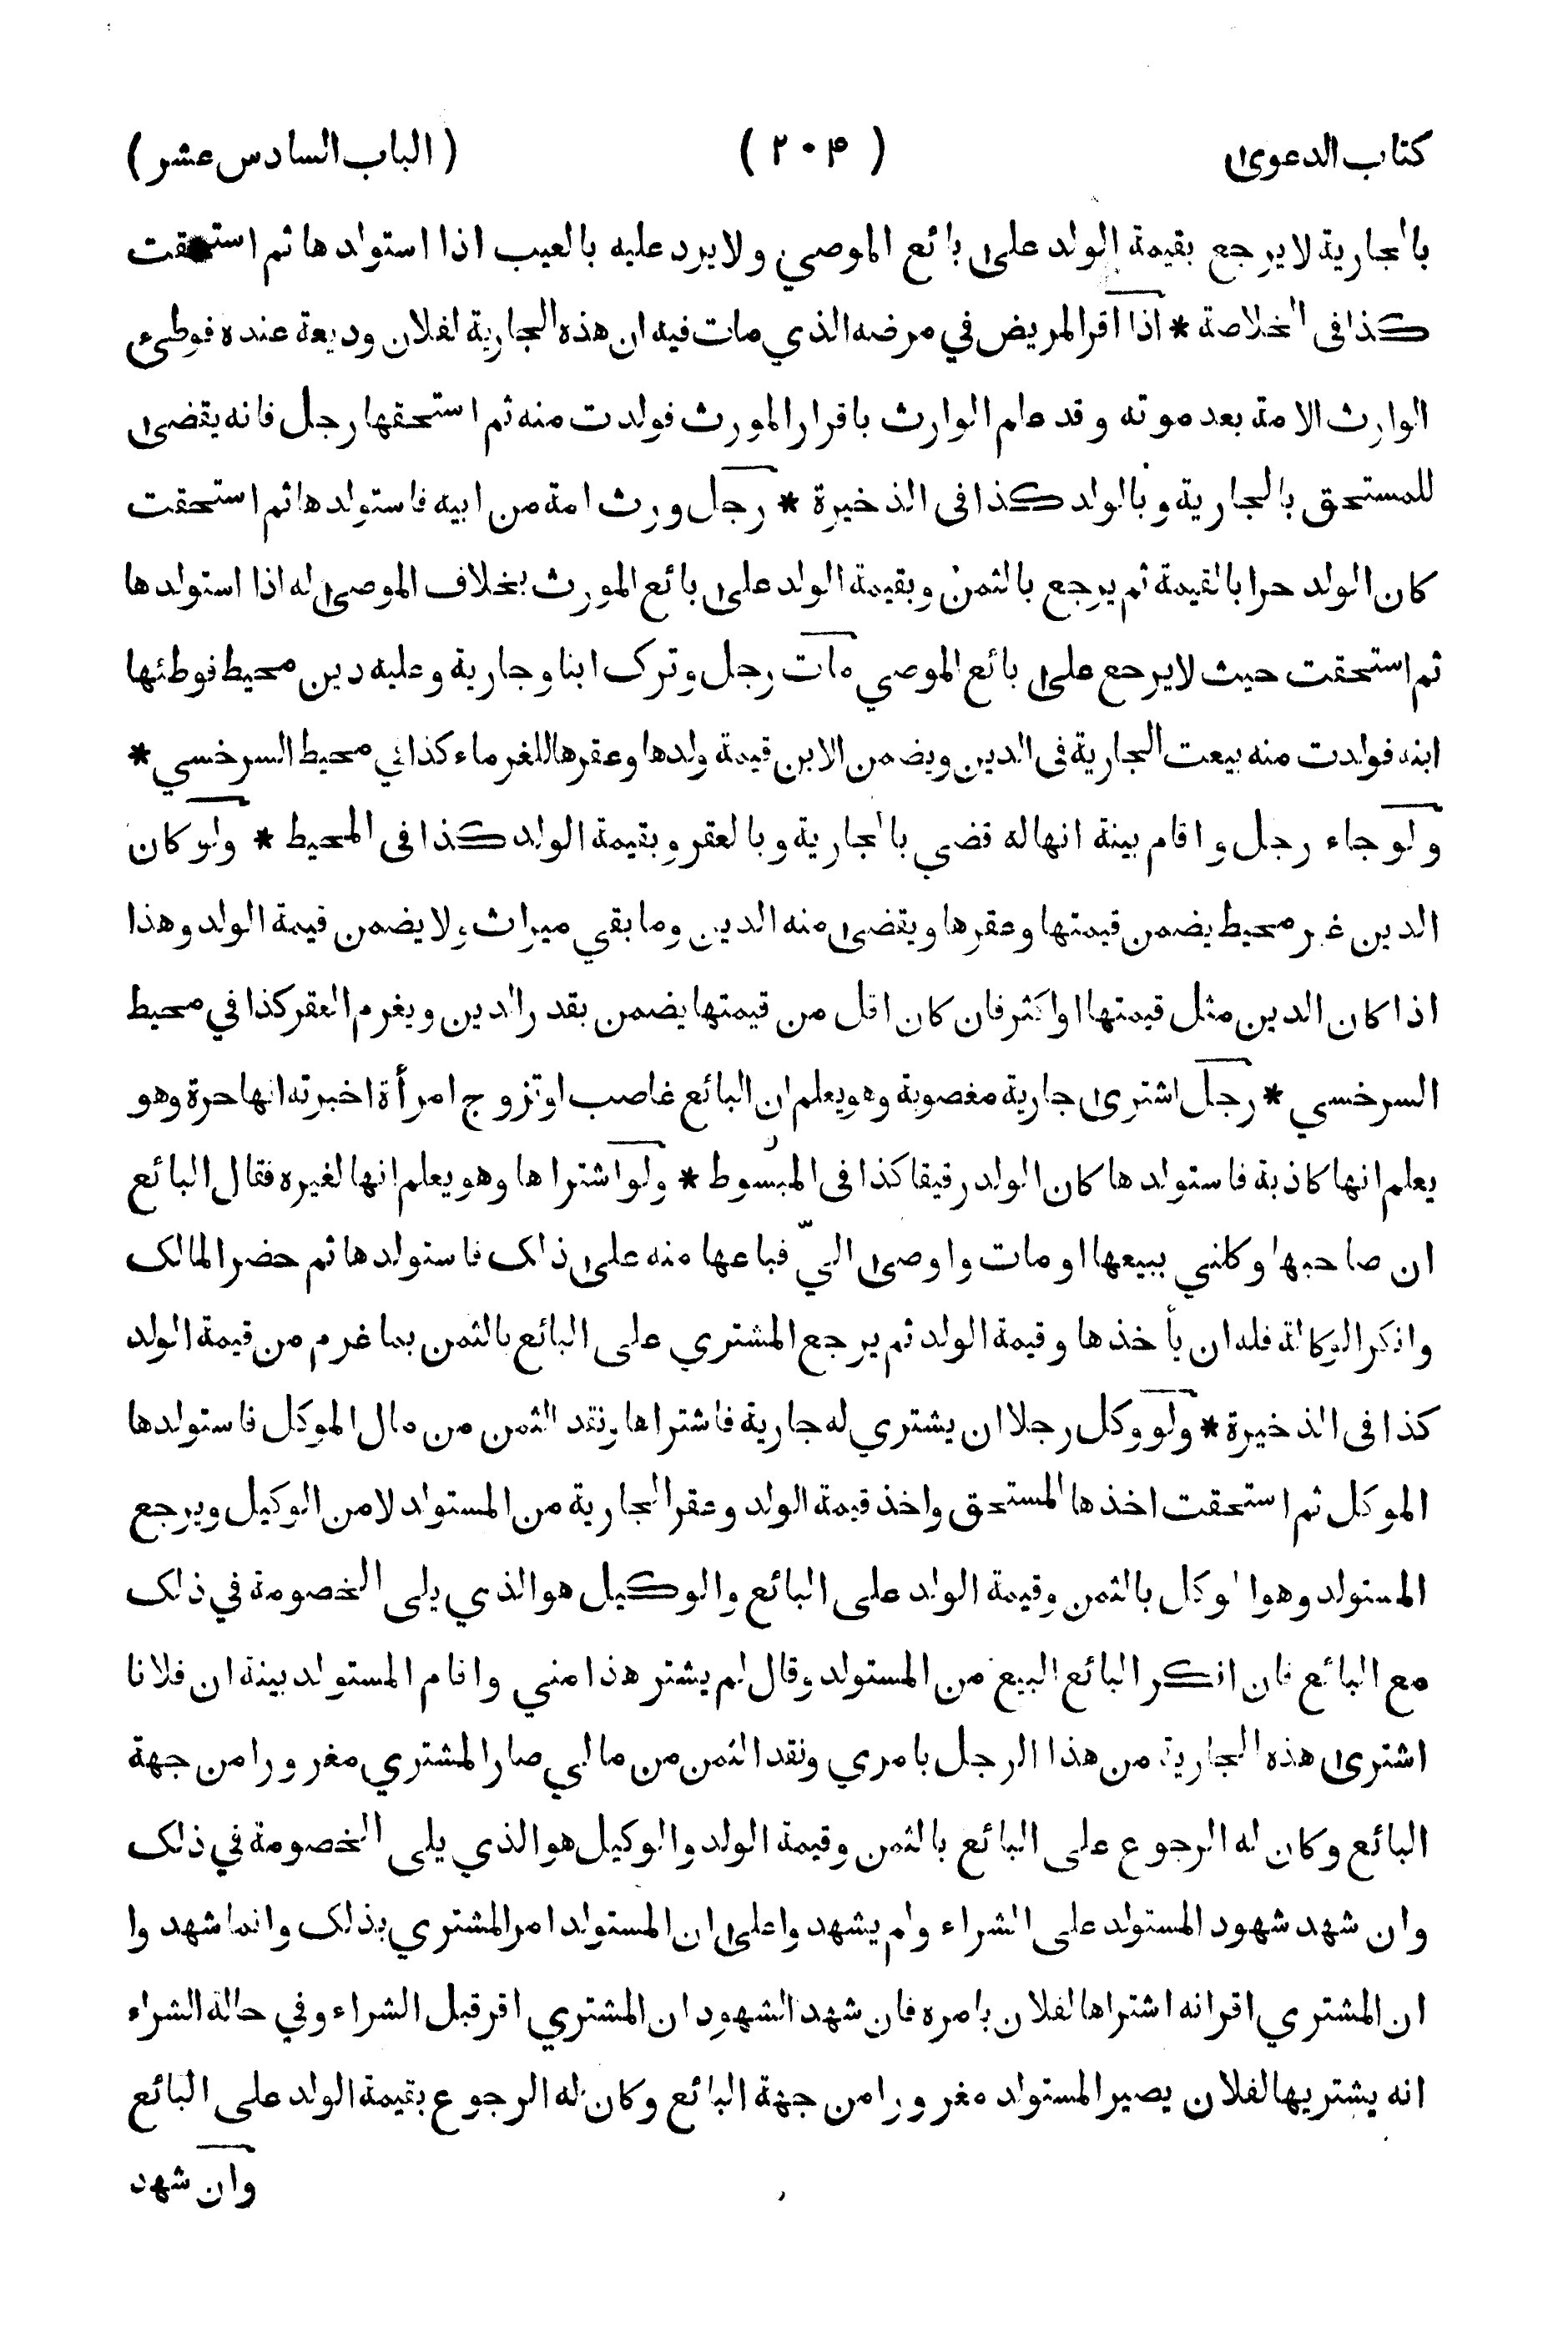 كتاب الدعوى ( ٢٠۴ ) ( الباب السادس عشر )
بالجارية لا يرجع بقيمة الولد على بائع الموصي ولا يرد عليه بالعيب اذا استولدها ثم استحقت
كذا فى الخلاصة * اذا اقر المريض في مرضه الذي مات فيه ان هذه الجارية لفلان وديعة عنده فوطىء
الوارث الامة بعد موته وقد علم الوارث باقرار المورث فولدت منه ثم استحقها رجل فانه يقضى
للمستحق بالجارية وبالولد كذا فى الذخيرة * رجل ورث امة من ابيه فاستولدها ثم استحقت
كان الولد حرا بالقيمة ثم يرجع بالثمن وبقيمة الولد على بائع المورث بخلاف الموصى له اذا استولدها
ثم استحقت حيث لا يرجع على بائع الموصي مات رجل وترك ابنا وجارية وعليه دين محيط فوطئها
ابنه فولدت منه بيعت الجارية فى الدين ويضمن الابن قيمة ولدها وعقرها للغرماء كذا في محيط السرخسي *
ولو جاء رجل واقام بينة انها له قضي بالجارية وبالعقر وبقيمة الولد كذا فى المحيط * ولو كان
الدين غير محيط يضمن قيمتها وعقرها ويقضى منه الدين وما بقي ميراث ولا يضمن قيمة الولد وهذا
اذا كان الدين مثل قيمتها او اكثر فان كان اقل من قيمتها يضمن بقدر الدين ويغرم العقر كذا في محيط
السرخسي * رجل اشترى جارية مغصوبة وهو يعلم ان البائع غاصب او تزوج امرأة اخبرته انها حرة وهو
يعلم انها كاذبة فاستولدها كان الولد رقيقا كذا فى المبسوط * ولو اشتراها وهو يعلم انها لغيره فقال البائع
ان صاحبها وكلني ببيعها او مات واوصى اليّ فباعها منه على ذلك فاستولدها ثم حضر المالك
وانكر الوكالة فله ان يأخذها وقيمة الولد ثم يرجع المشتري على البائع بالثمن بما غرم من قيمة الولد
كذا فى الذخيرة * ولو وكل رجلا ان يشتري له جارية فاشتراها ونقد الثمن من مال الموكل فاستولدها
الموكل ثم استحقت اخذها المستحق واخذ قيمة الولد وعقر الجارية من المستولد لا من الوكيل ويرجع
المستولد وهو الموكل بالثمن وقيمة الولد على البائع والوكيل هو الذي يلى الخصومة في ذلك
مع البائع فان انكر البائع البيع من المستولد وقال لم يشتر هذا مني واقام المستولد بينة ان فلانا
اشترى هذه الجارية من هذا الرجل بامري ونقد الثمن من مالي صار المشتري مغرورا من جهة
البائع وكان له الرجوع على البائع بالثمن وقيمة الولد والوكيل هو الذي يلى الخصومة في ذلك
وان شهد شهود المستولد على الشراء ولم يشهدوا على ان المستولد امر المشتري بذلك وانما شهدوا
ان المشتري اقر انه اشتراها لفلان بامره فان شهد الشهود ان المشتري اقر قبل الشراء وفي حالة الشراء
انه يشتريها لفلان يصير المستولد مغرورا من جهة البائع وكان له الرجوع بقيمة الولد على البائع
وان شهد